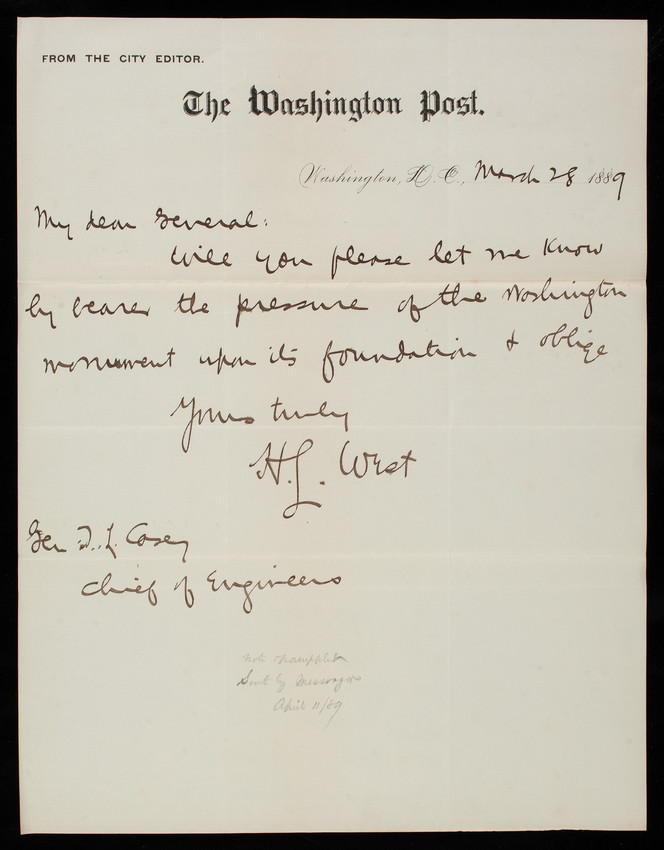 FROM THE CITY EDITOR.
The Washington Post.
Washington, D. C., March 28 1889
My dear General:
Will you please let me know
by bearer the pressure of the Washington
monument upon its foundation & oblige
Yours truly
H. L. West
Gen T. L. Casey
Chief of Engineers
note & pamphlet
Sent by Messenger
April 11/89